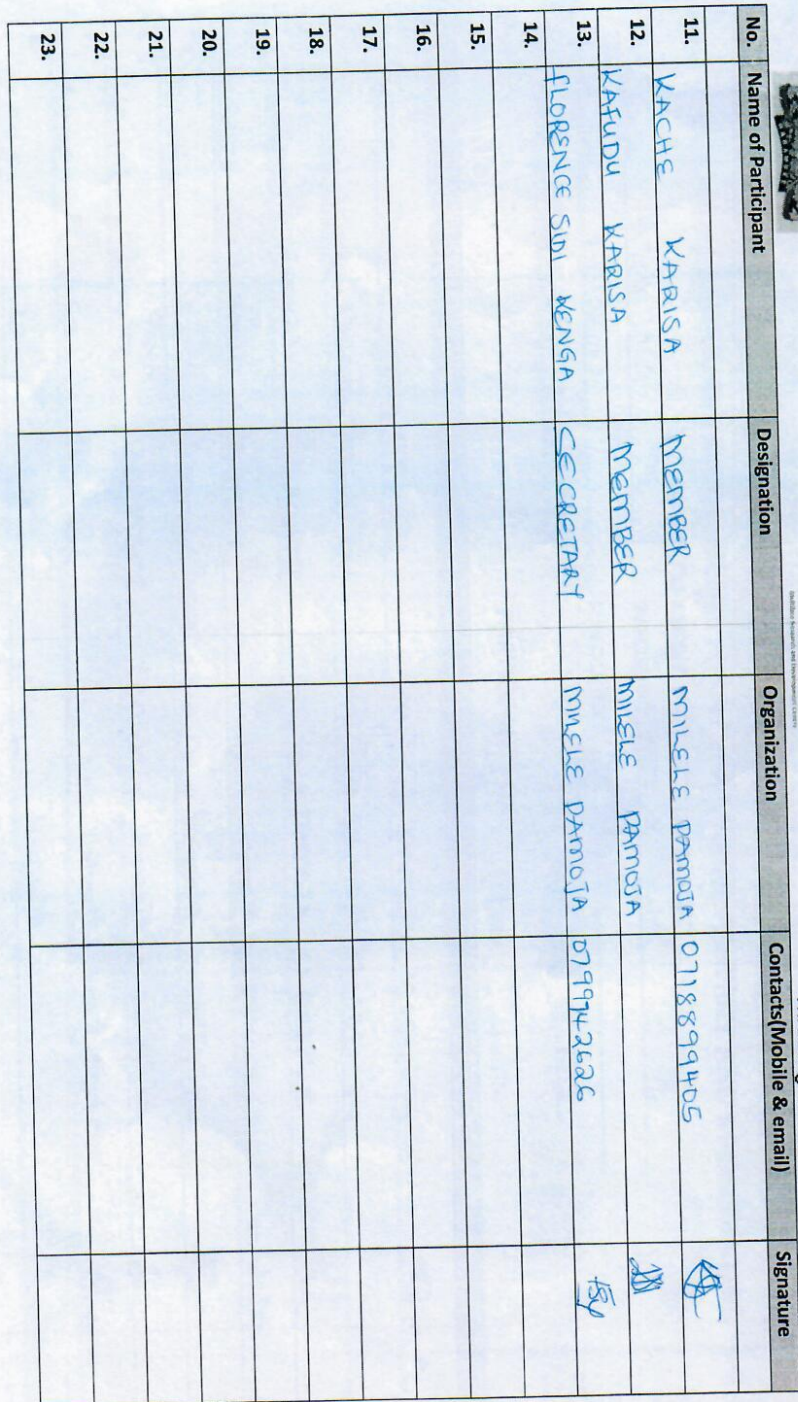 No. Name of Participant Designation Organization Contacts(Mobile & email) Signature
11. KACHE KARISA MEMBER MILELE PAMOJA 0718899405
12. KAFUDU KARISA MEMBER MILELE PAMOJA
13. FLORENCE SIDI KENGA SECRETARY MILELE PAMOJA 0799742626
14.
15.
16.
17.
18.
19.
20.
21.
22.
23.